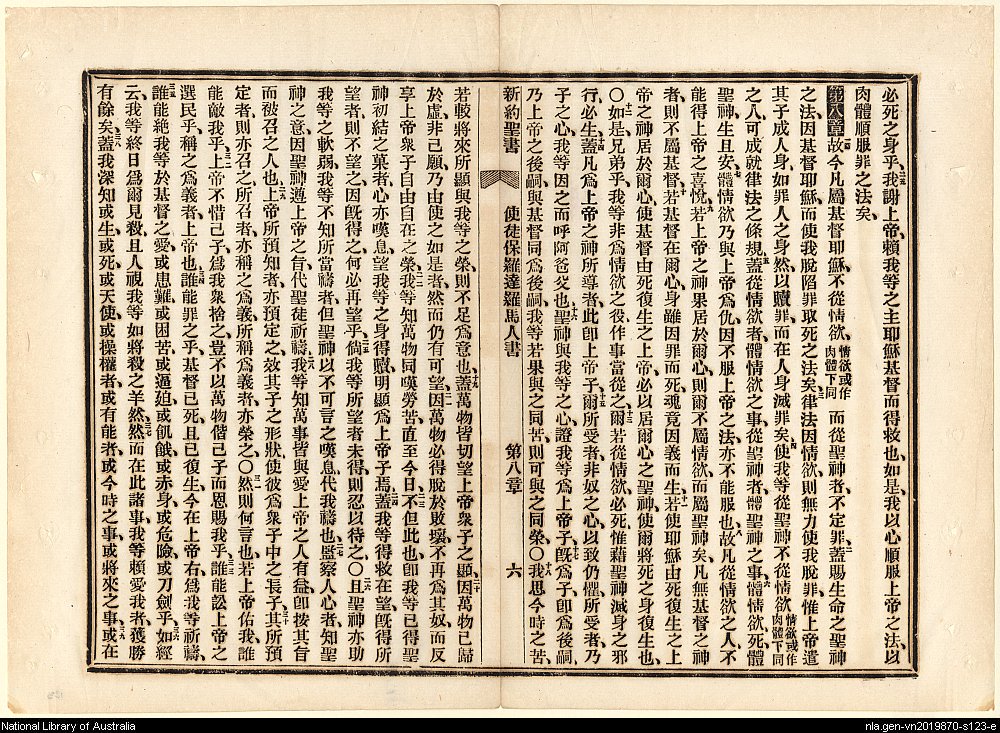 必死之身乎、我謝上帝、賴我等之主耶穌基督而得救也、如是、我以心順服上帝之法、以
肉體順服罪之法矣、
第八章 故今凡屬基督耶穌、不從情欲、情欲或作肉體下同 而從聖神者、不定罪、蓋賜生命之聖神
之法、因基督耶穌、而使我脫陷罪取死之法矣、律法因情欲、則無力使我脫罪、惟上帝遣
其子成人身、如罪人之身然、以贖罪、而在人身滅罪矣、使我等從聖神不從情欲 情欲或作肉體下同
之人、可成就律法之條規、蓋從情欲者、體情欲之事、從聖神者、體聖神之事、體情欲死、體
聖神、生且安、體情欲乃與上帝為仇、因不服上帝之法、亦不能服也、故凡從情欲之人、不
能得上帝之喜悅、若上帝之神果居於爾心、則爾不屬情欲、而屬聖神矣、凡無基督之神
者、則不屬基督、若基督在爾心、身雖因罪而死、魂竟因義而生、若使耶穌由死復生之上
帝之神居於爾心、使基督由死復生之上帝、必以居爾心之聖神、使爾將死之身復生也、
○如是兄弟乎、我等非為情欲之役、作事當從之、爾若從情欲、必死、惟藉聖神滅身之邪
行、必生、蓋凡為上帝之神所導者、此卽上帝子、爾所受者、非奴之心以致仍懼、所受者、乃
子之心、我等因之而呼阿爸父也、聖神與我等之心證我等為上帝子、旣為子、卽為後嗣、
乃上帝之後嗣、與基督同為後嗣、我等若果與之同苦、則可與之同榮、○我思今時之苦、
新約聖書 使徒保羅達羅馬人書 第八章 六
若較將來所顯與我等之榮、則不足為意也、蓋萬物皆切望上帝衆子之顯、因萬物已歸
於虛、非己願、乃由使之如是者、然而仍有可望、因萬物必得脫於敗壞、不再為其奴、而反
享上帝衆子自由自在之榮、我等知萬物同嘆勞苦、直至今日、不但此也、卽我等已得聖
神初結之菓者、心亦嘆息、望我等之身得贖、明顯為上帝子焉、蓋我等得救在望、旣得所
望者、則不望之、因旣得之、何必再望乎、倘我等所望者未得、則忍以待之、○且聖神亦助
我等之軟弱、我等不知所當禱者、但聖神以不可言之嘆息、代我禱也、監察人心者、知聖
神之意、因聖神遵上帝之旨、代聖徒祈禱、我等知萬事皆與愛上帝之人有益、卽按其旨
而被召之人也、上帝所預知者、亦預定之、效其子之形狀、使彼為衆子中之長子、其所預
定者、則亦召之、所召者、亦稱之為義、所稱為義者、亦榮之、○然則何言也、若上帝佑我、誰
能敵我乎、上帝不惜己子、為我衆捨之、豈不以萬物偕己子而恩賜我乎、誰能訟上帝之
選民乎、稱之為義者、上帝也、誰能罪之乎、基督已死、且已復生、今在上帝右、為我等祈禱、
誰能絕我等於基督之愛、或患難、或困苦、或逼迫、或飢餓、或赤身、或危險、或刀劍乎、如經
云、我等終日為爾見殺、且人視我等如將殺之羊然、然而在此諸事、我等賴愛我者、獲勝
有餘矣、蓋我深知或生、或死、或天使、或操權者、或有能者、或今時之事、或將來之事、或在
National Library of Australia
nla.gen-vn2019870-s123-e